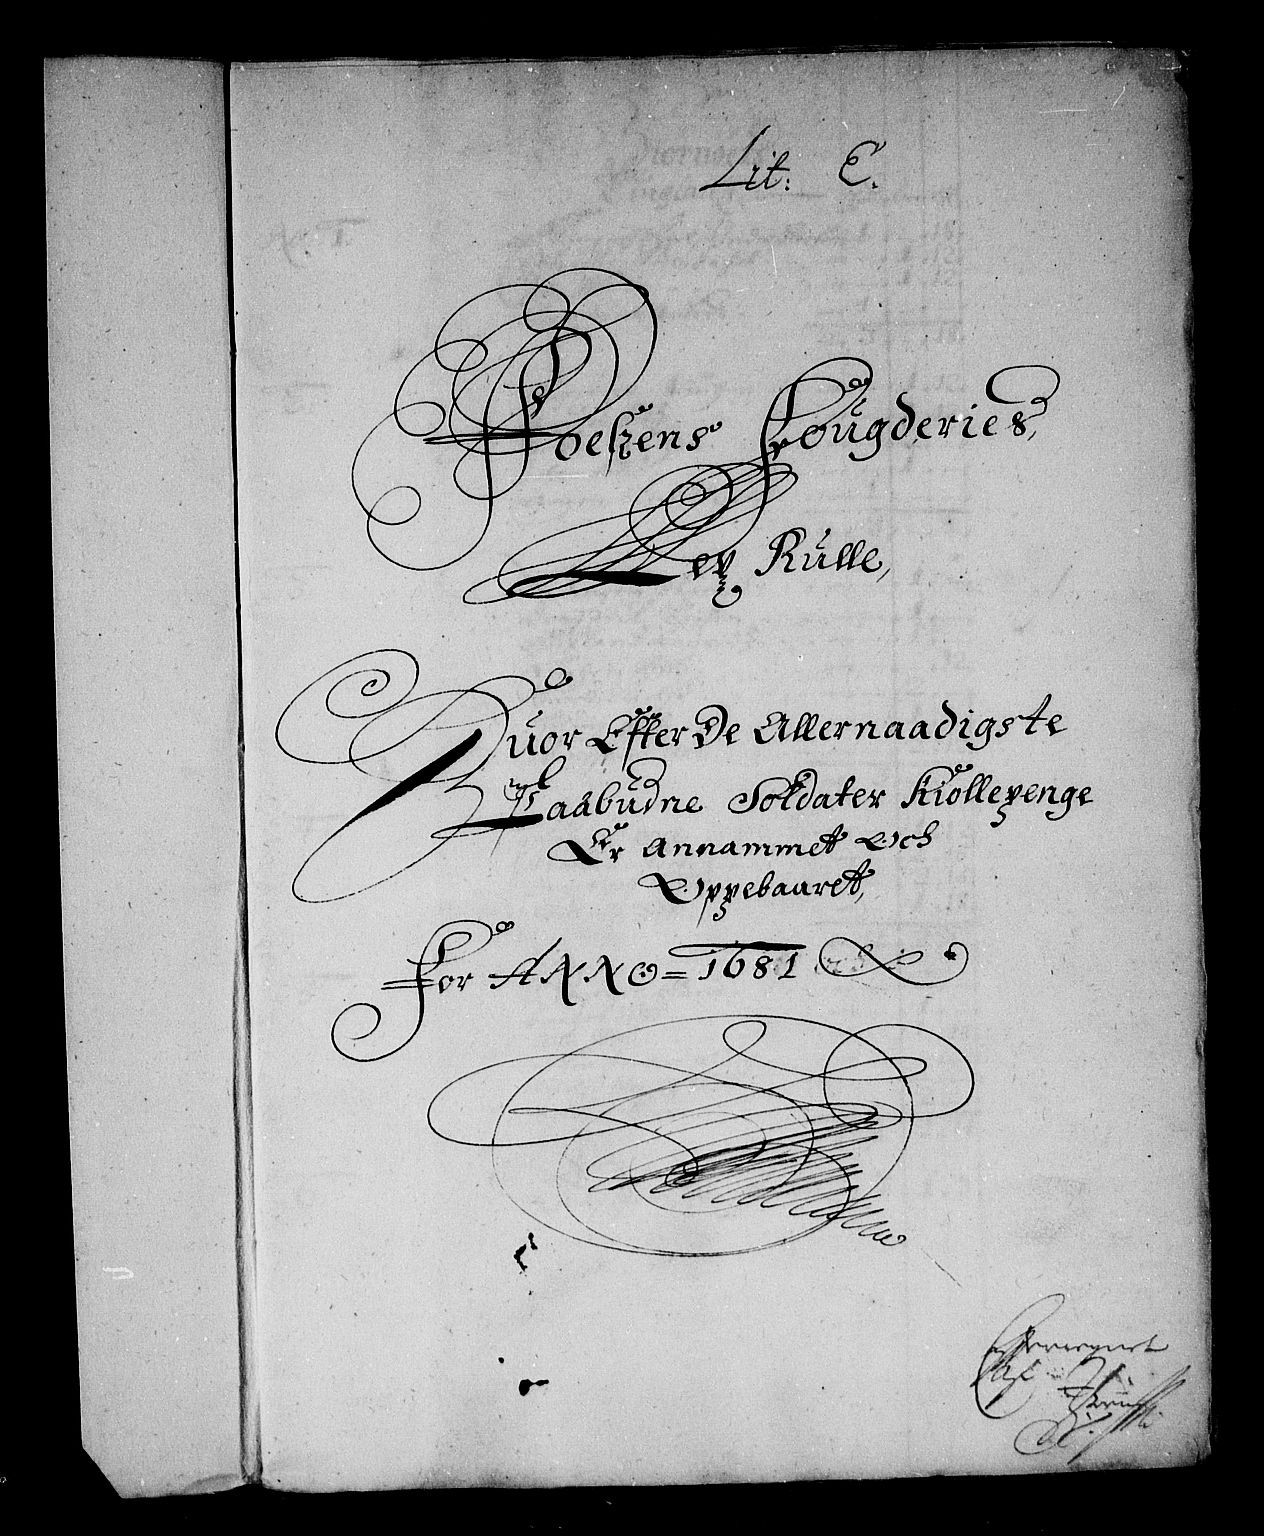 Lit: C.
Foesens Fougderies,
Leÿ Rulle,
Huor Efter De Allernaadigste
Paabudne Soldater Kiollepenge
Er Annammet Och
Oppebaaret,
For ANNO = 1681